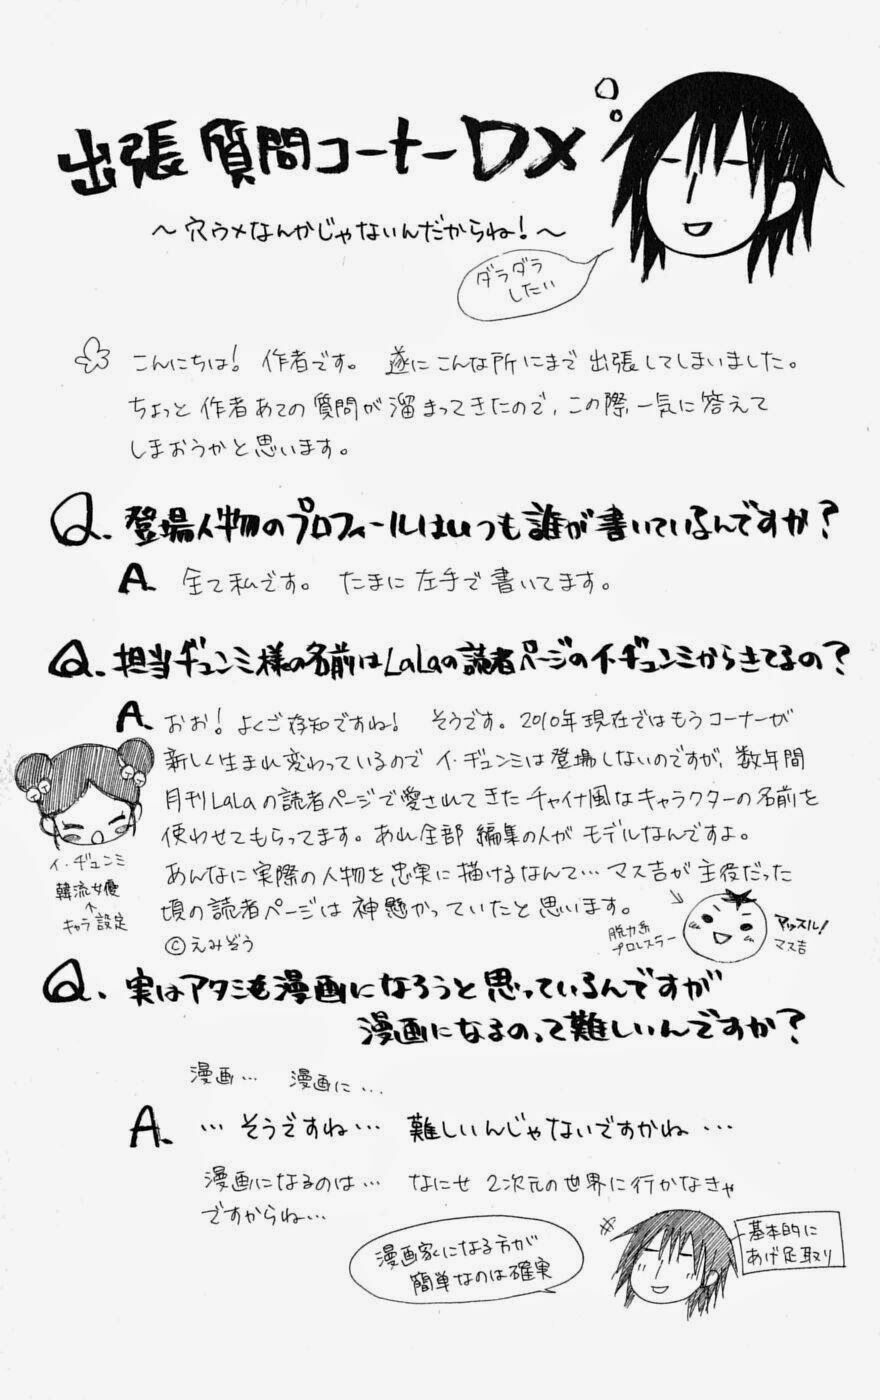 出張質問コーナーDX
～穴ウメなんかじゃないんだからね!～
ダラダラ
したい
こんにちは! 作者です。 遂にこんな所にまで出張してしまいました。
ちょっと作者あての質問が溜まってきたので、この際一気に答えて
しまおうかと思います。
Q. 登場人物のプロフィールはいつも誰が書いているんですか?
A. 全て私です。 たまに左手で書いてます。
Q. 担当ヂュンミ様の名前はLaLaの読者ページのイ・ヂュンミからきてるの?
A. おお! よくご存知ですね! そうです。2010年現在ではもうコーナーが
新しく生まれ変わっているのでイ・ヂュンミは登場しないのですが、数年間
月刊LaLaの読者ページで愛されてきたチャイナ風なキャラクターの名前を
使わせてもらってます。あれ全部編集の人がモデルなんですよ。
あんなに実際の人物を忠実に描けるなんて…マス吉が主役だった
頃の読者ページは神懸かっていたと思います。
©えみぞう
イ・ヂュンミ
韓流女優
キャラ設定
脱力系
プロレスラー
アッスル!
マス吉
Q. 実はアタシも漫画になろうと思っているんですが
漫画になるのって難しいんですか?
漫画… 漫画に…
A. …そうですね… 難しいんじゃないですかね…
漫画になるのは… なにせ 2次元の世界に行かなきゃ
ですからね…
漫画家になる方が
簡単なのは確実
基本的に
あげ足取り